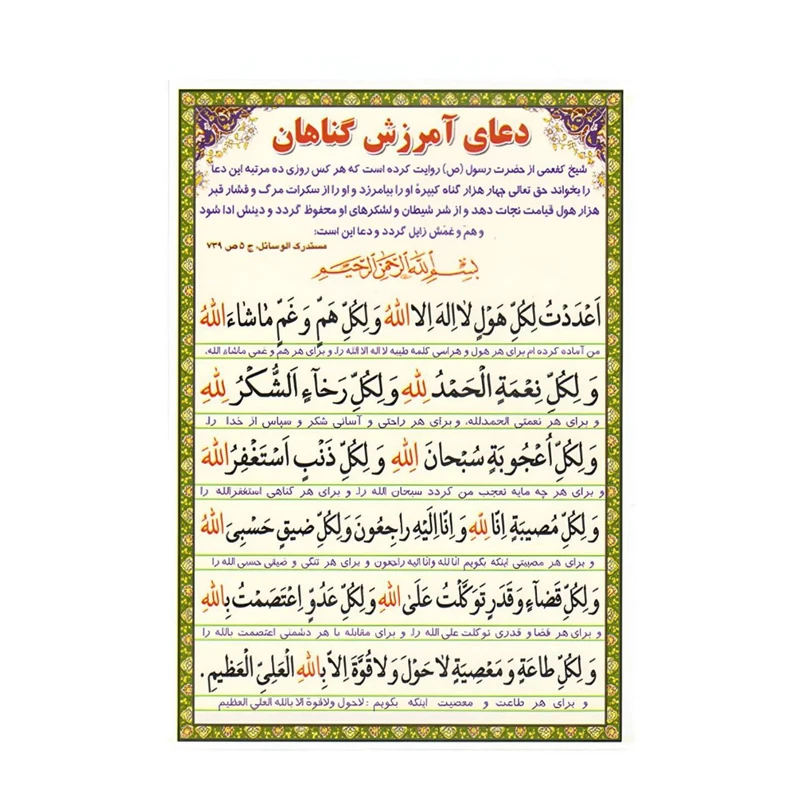 دعای آمرزش گناهان
شیخ کفعمی از حضرت رسول (ص) روایت کرده است که هر کس روزی ده مرتبه این دعا
را بخواند حق تعالی چهار هزار گناه کبیرهٔ او را بیامرزد و او را از سکرات مرگ و فشار قبر
هزار هول قیامت نجات دهد و از شر شیطان و لشکرهای او محفوظ گردد و دینش ادا شود
و همّ و غمّش زایل گردد و دعا این است:
مستدرک الوسائل، ج ۵ ص ۷۳۹
بِسْمِ اللهِ الرَّحْمنِ الرَّحیمِ
اَعْدَدْتُ لِكُلِّ هَوْلٍ لٰا اِلهَ اِلاَّ اللهُ وَ لِكُلِّ هَمٍّ وَ غَمٍّ مٰا شٰاءَ اللهُ
من آماده کرده ام برای هر هول و هراسی کلمه طیبه لا اله الا الله را، و برای هر هم و غمی ماشاء الله،
وَ لِكُلِّ نِعْمَةٍ اَلْحَمْدُ لِلّٰهِ وَ لِكُلِّ رَخٰآءٍ اَلشُّكْرُ لِلّٰهِ
و برای هر نعمتی الحمدلله، و برای هر راحتی و آسانی شکر و سپاس از خدا را،
وَ لِكُلِّ اُعْجُوبَةٍ سُبْحٰانَ اللهِ وَ لِكُلِّ ذَنْبٍ اَسْتَغْفِرُ اللهَ
و برای هر چه مایه تعجب من گردد سبحان الله را، و برای هر گناهی استغفرالله را
وَ لِكُلِّ مُصیبَةٍ اِنّٰا لِلّٰهِ وَ اِنّٰا اِلَیْهِ رٰاجِعُونَ وَ لِكُلِّ ضیقٍ حَسْبِیَ اللهُ
و برای هر مصیبتی اینکه بگویم انا لله وانا الیه راجعون و برای هر تنگی و ضیقی حسبی الله را
وَ لِكُلِّ قَضٰآءٍ وَ قَدَرٍ تَوَكَّلْتُ عَلَی اللهِ وَ لِكُلِّ عَدُوٍّ اِعْتَصَمْتُ بِاللهِ
و برای هر قضا و قدری توکلت علی الله را، و برای مقابله با هر دشمنی اعتصمت بالله را
وَ لِكُلِّ طٰاعَةٍ وَ مَعْصِیَةٍ لٰا حَوْلَ وَ لٰا قُوَّةَ اِلاّٰ بِاللهِ الْعَلِیِّ الْعَظیمِ.
و برای هر طاعت و معصیت اینکه بگویم : لاحول ولاقوة الا بالله العلی العظیم